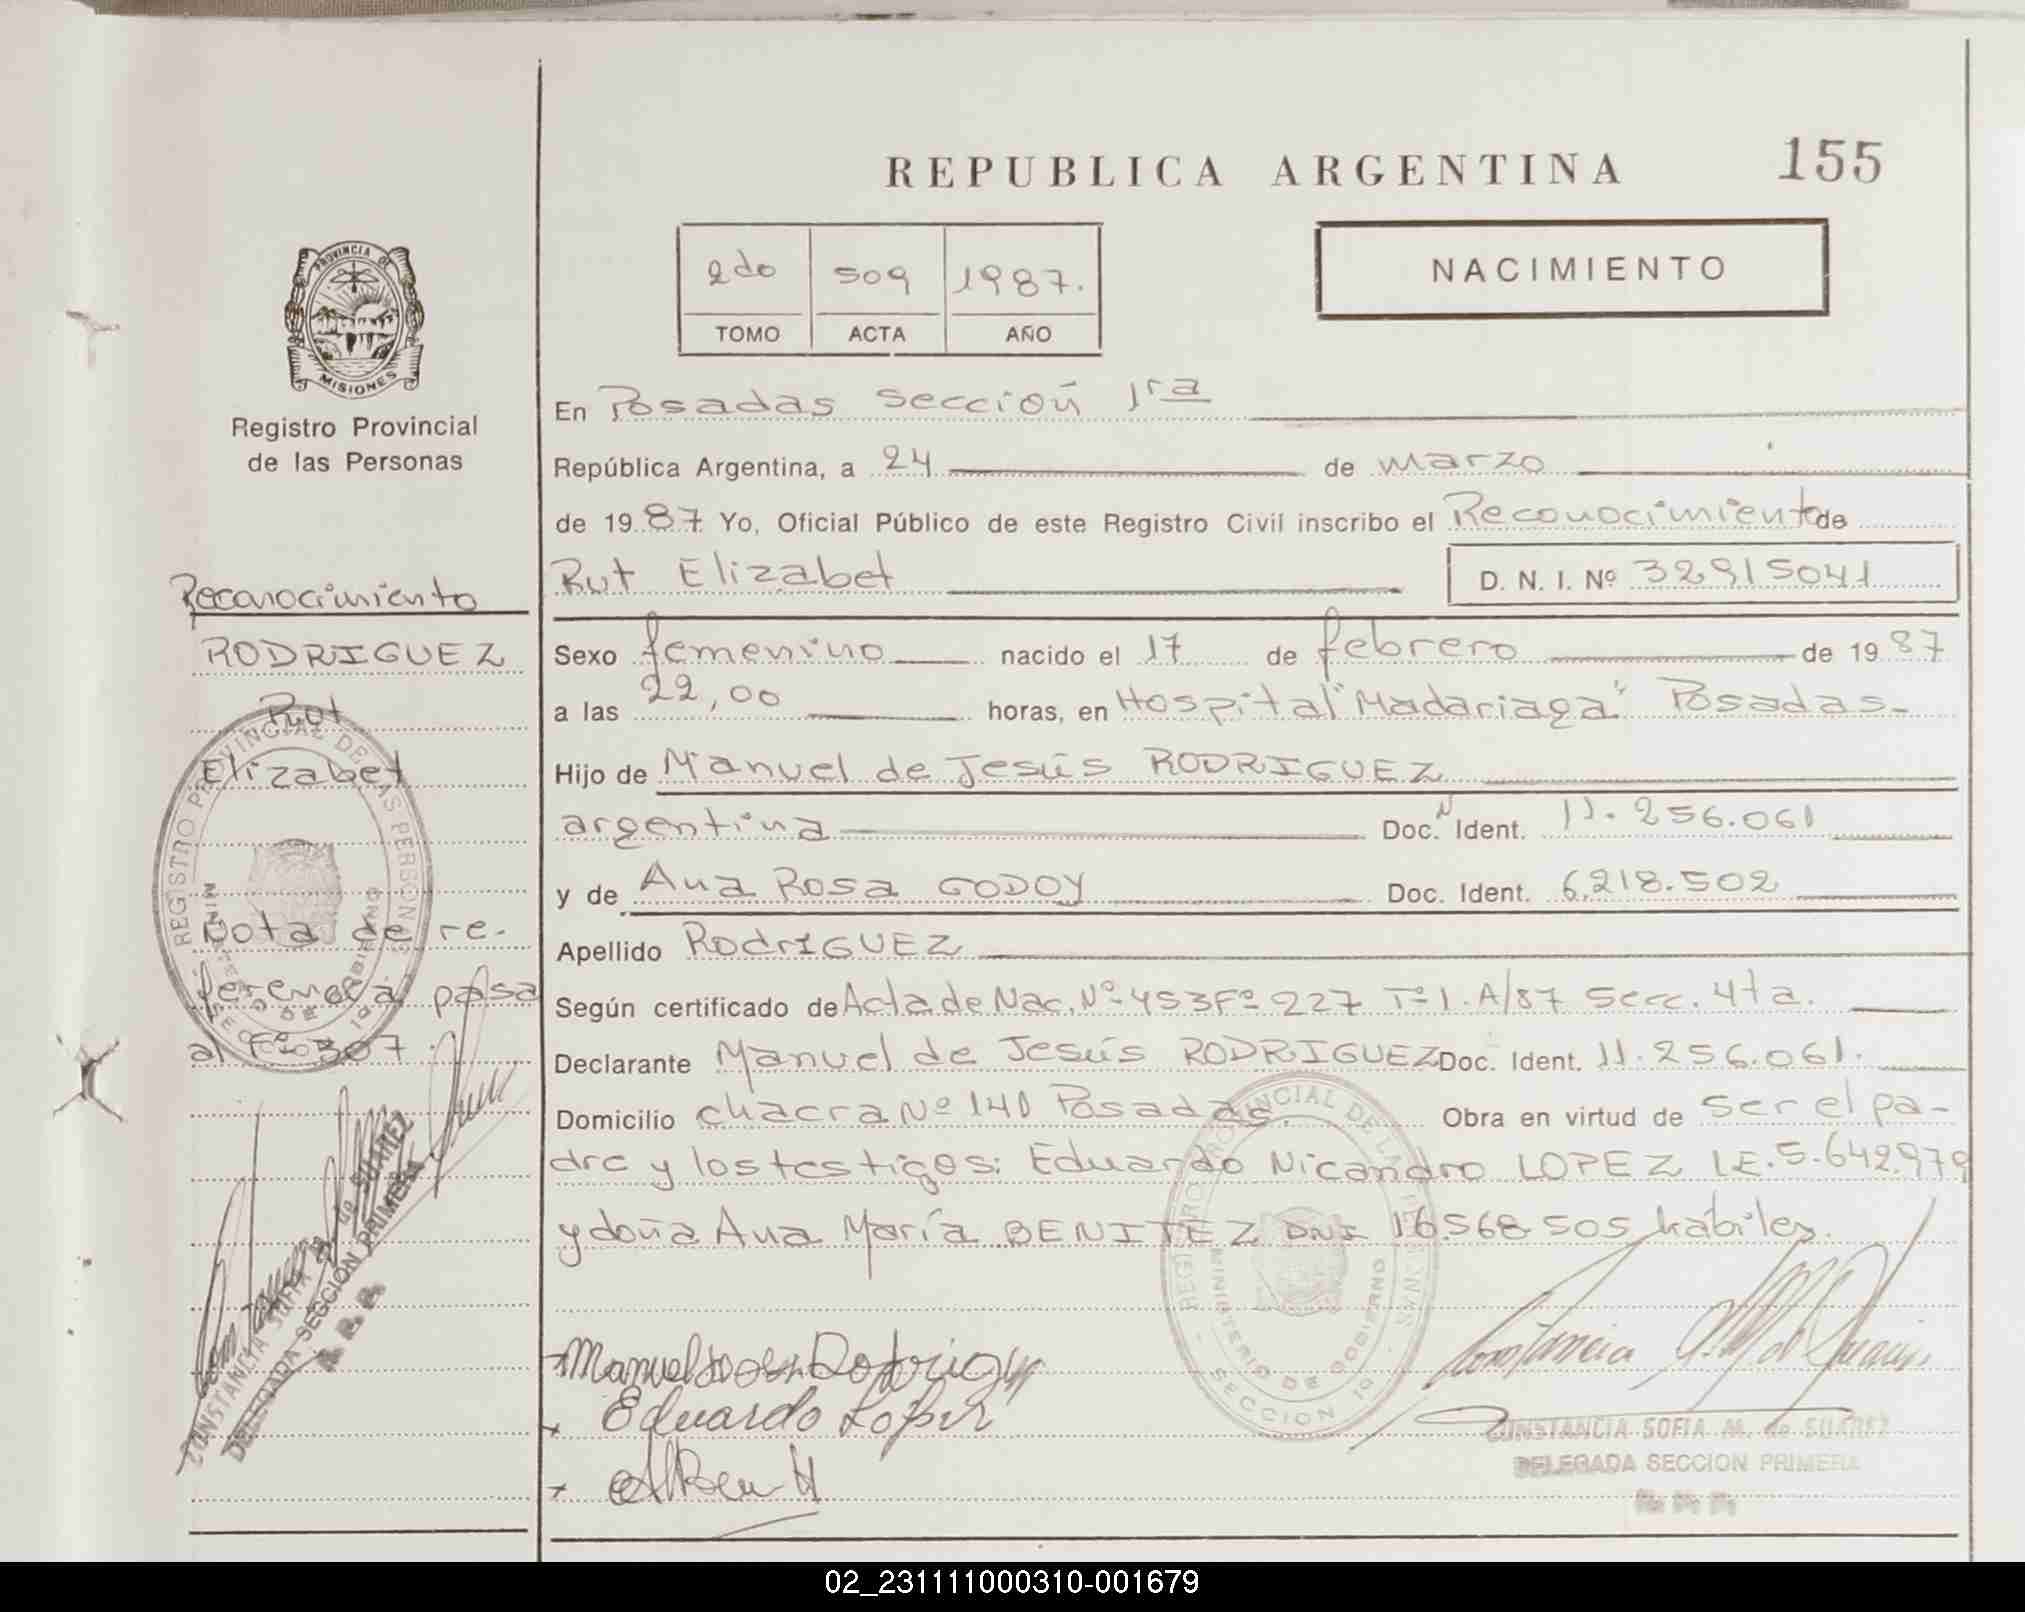 REPUBLICA ARGENTINA 155
2do 509 1987.
TOMO ACTA AÑO
NACIMIENTO
PROVINCIA DE
MISIONES
Registro Provincial
de las Personas
Reconocimiento
RODRIGUEZ
Rut
Elizabet
Nota de re-
ferencia pasa
al Fº 307
REGISTRO PROVINCIAL DE LAS PERSONAS
MINISTERIO DE GOBIERNO
SECCION 1ª
CONSTANCIA SOFIA M. de SUAREZ
DELEGADA SECCION PRIMERA
En Posadas Sección 1ra
República Argentina, a 24 de marzo
de 1987. Yo, Oficial Público de este Registro Civil inscribo el Reconocimiento de
Rut Elizabet D. N. I. Nº 32915041
Sexo femenino nacido el 17 de febrero de 1987
a las 22,00 horas, en Hospital "Madariaga" Posadas-
Hijo de Manuel de Jesús RODRIGUEZ
argentina Doc. N Ident. 11.256.061
y de Ana Rosa GODOY Doc. Ident. 6.218.502
Apellido RodrIGUEZ
Según certificado de Acta de Nac. Nº 453 Fº 227 Tº 1. A/87 Secc. 4ta.
Declarante Manuel de Jesús RODRIGUEZ Doc. Ident. 11.256.061.
Domicilio chacra Nº 140 Posadas. Obra en virtud de ser el pa-
dre y los testigos: Eduardo Nicandro LOPEZ LE.5.642.979
y doña Ana María BENITEZ DNI 16.568.505 hábiles.
REGISTRO PROVINCIAL DE LAS PERSONAS
MINISTERIO DE GOBIERNO
SECCION 1ª
Eduardo Lopez
CONSTANCIA SOFIA M. de SUAREZ
DELEGADA SECCION PRIMERA
02_231111000310-001679